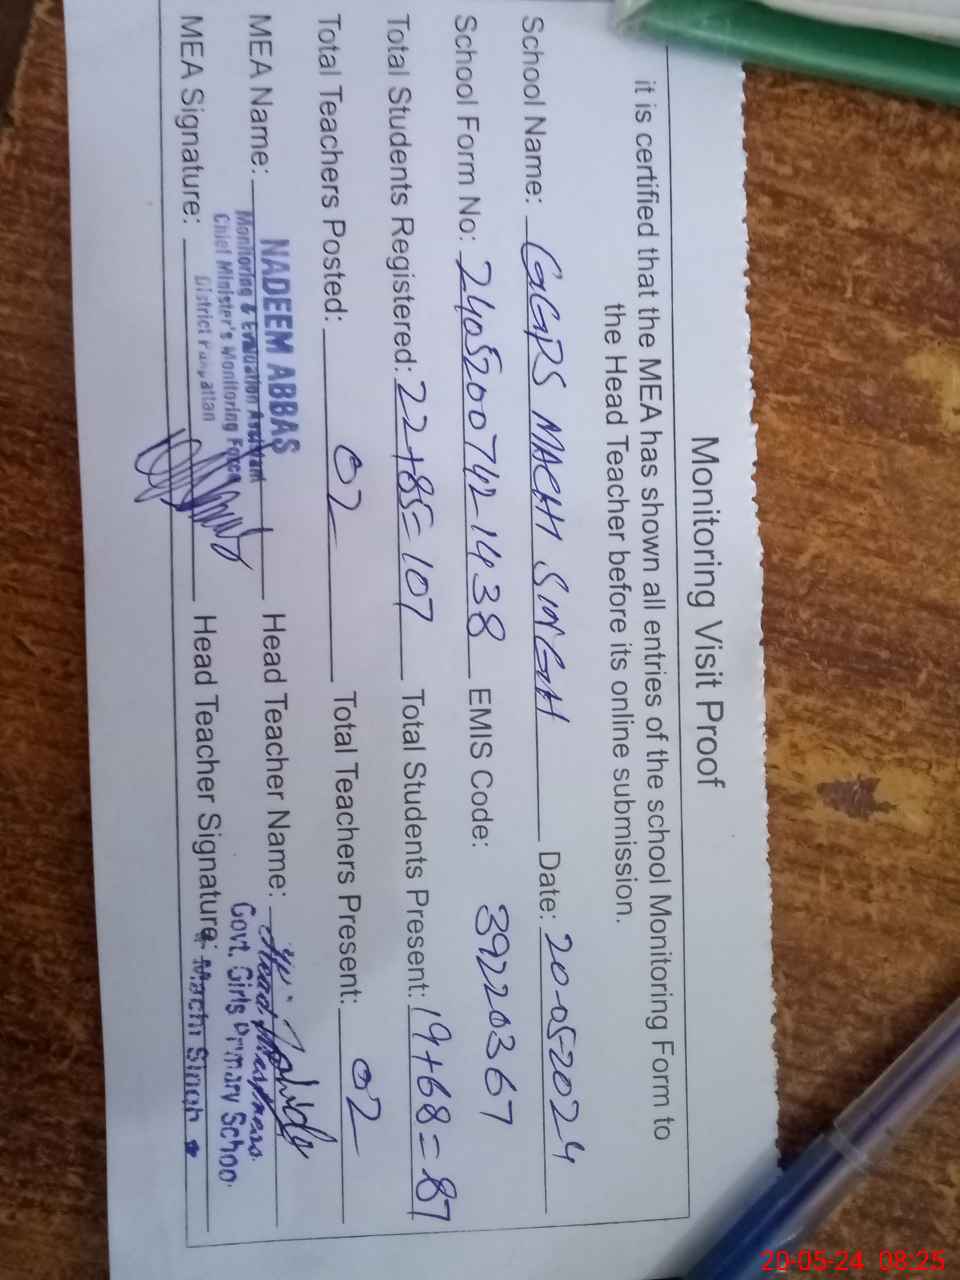 Monitoring Visit Proof
it is certified that the MEA has shown all entries of the school Monitoring Form to
the Head Teacher before its online submission.
School Name: GGPS MACHHI SINGH Date: 20-05-2024
School Form No: 24052007421438 EMIS Code: 39220367
Total Students Registered: 22+85=107 Total Students Present: 19+68=87
Total Teachers Posted: 02 Total Teachers Present: 02
MEA Name: NADEEM ABBAS Head Teacher Name:
Monitoring & Evaluation Assistant
Chief Minister's Monitoring Force
District Pakpattan
Head Mistress
Govt. Girls Primary School
MEA Signature: Head Teacher Signature: Machi Singh
20-05-24 08:25